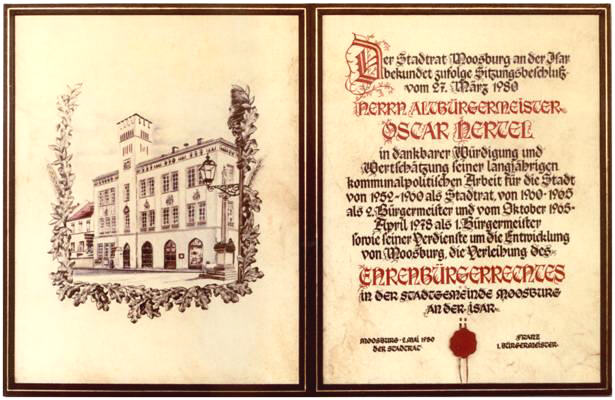 Der Stadtrat Moosburg an der Isar
bekundet zufolge Sitzungsbeschluß
vom 27. März 1980
HERRN ALTBÜRGERMEISTER
OSCAR HERTEL
in dankbarer Würdigung und
Wertschätzung seiner langjährigen
kommunalpolitischen Arbeit für die Stadt
von 1952-1960 als Stadtrat, von 1960-1965
als 2. Bürgermeister und vom Oktober 1965-
April 1978 als 1. Bürgermeister
sowie seiner Verdienste um die Entwicklung
von Moosburg, die Verleihung des
EHRENBÜRGERRECHTES
IN DER STADTGEMEINDE MOOSBURG
AN DER ISAR
MOOSBURG · 2. MAI 1980
DER STADTRAT
FRANZ
1. BÜRGERMEISTER